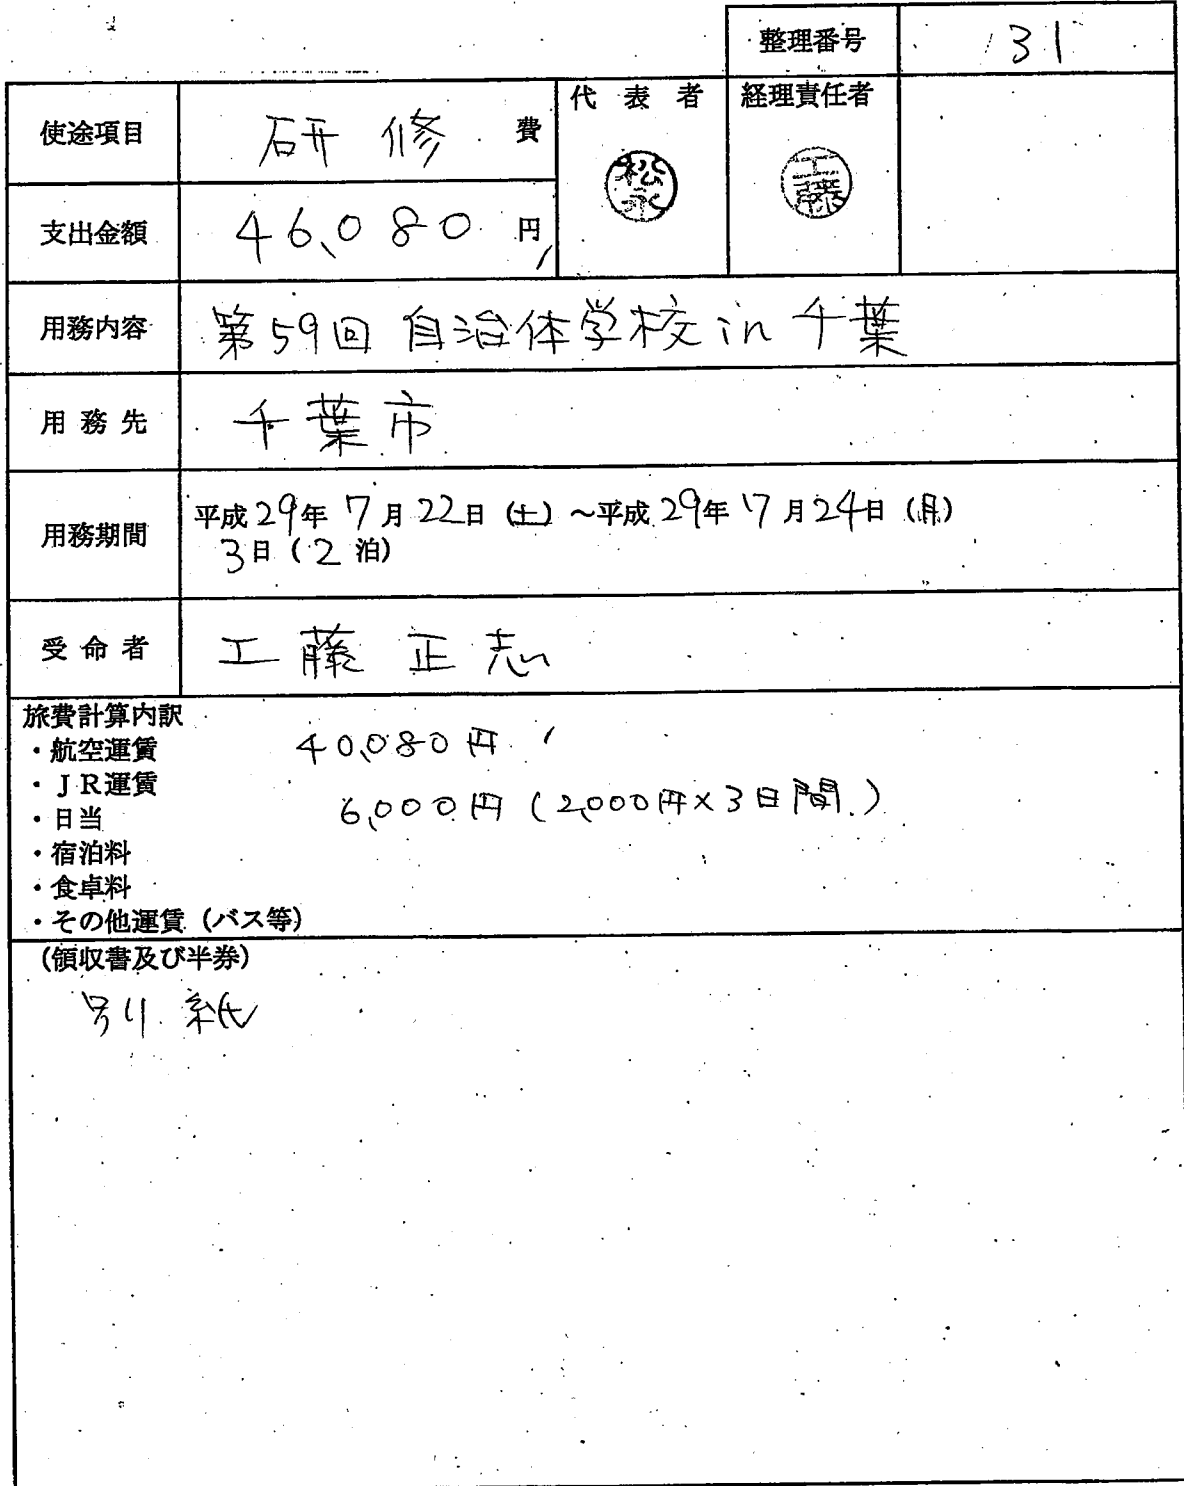 整理番号 31
使途項目 研修 費
代表者 経理責任者
松永 工藤
支出金額 46,080 円
用務内容 第59回 自治体学校 in 千葉
用務先 千葉市
用務期間 平成29年 7月22日(土)~平成29年 7月24日(月)
3日(2泊)
受命者 工藤 正志
旅費計算内訳
・航空運賃 40,080円
・JR運賃
・日当 6,000円(2,000円×3日間.)
・宿泊料
・食卓料
・その他運賃(バス等)
(領収書及び半券)
別紙